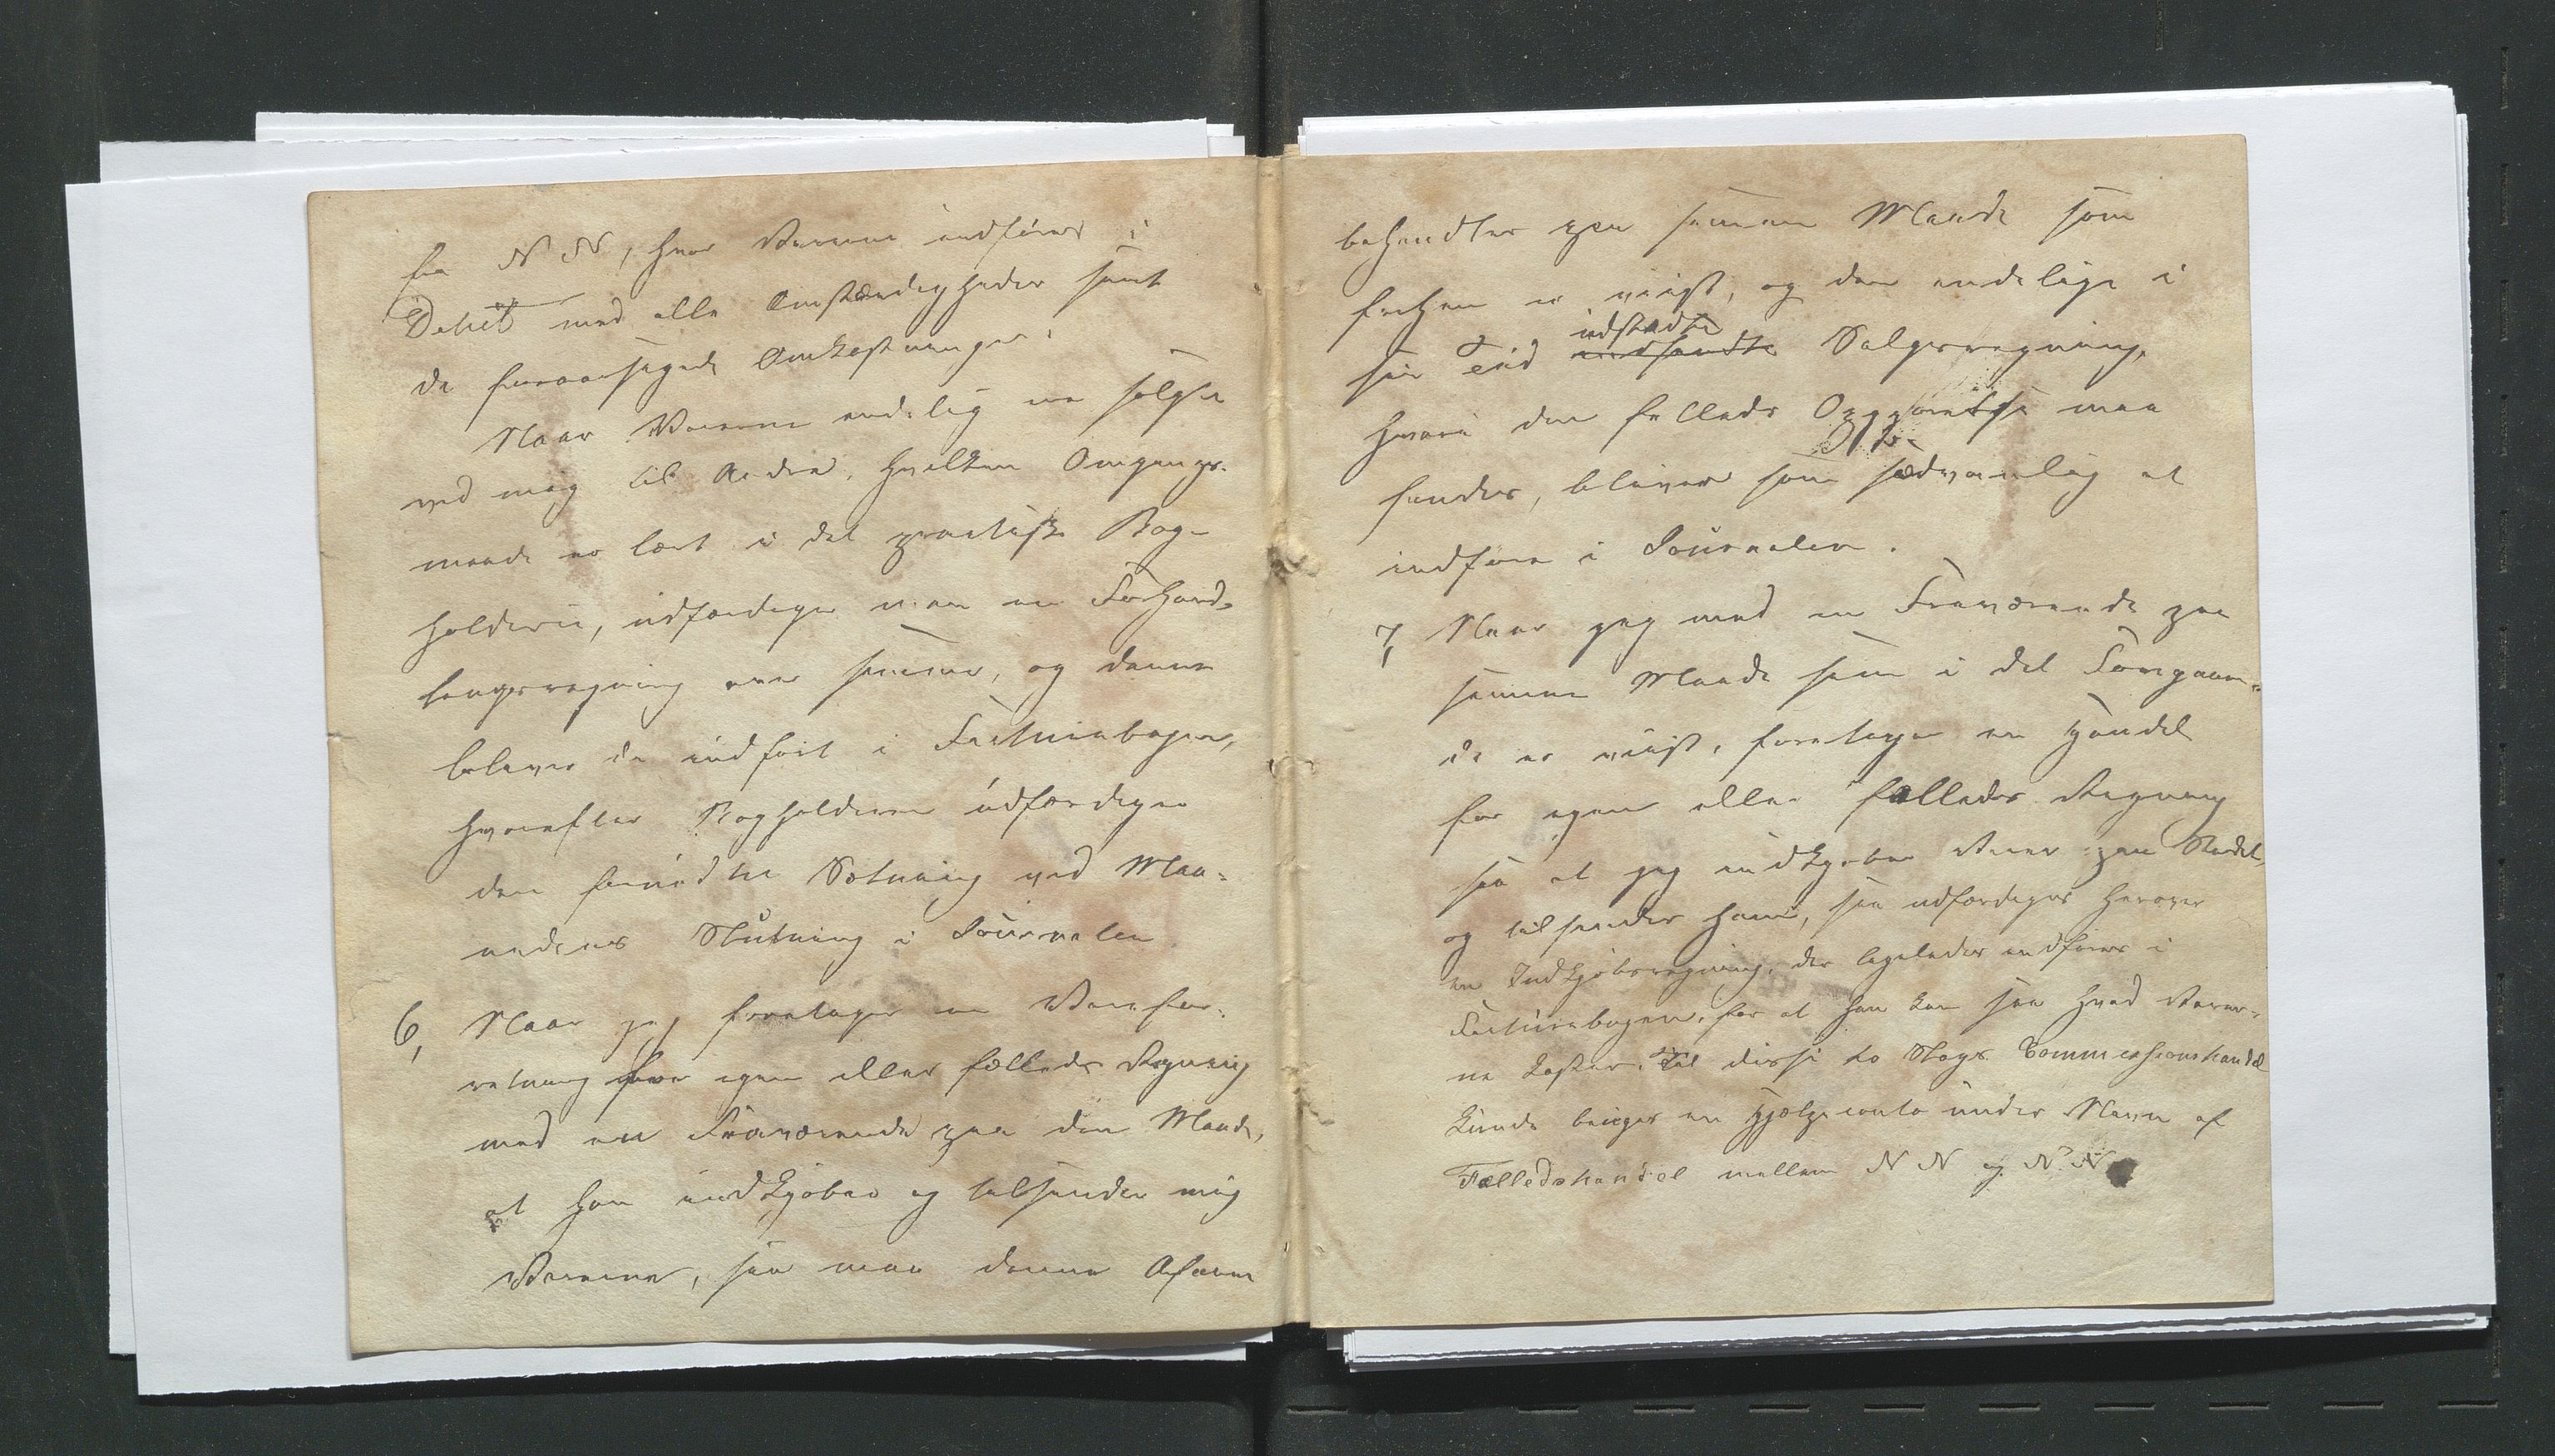 fra N N, hvor Varerne indføres i
Debet med alle Omstændigheder samt
de foraarsagede Omkostninger.
Naar Varerne endelig ere solgte
ved mig til Andre, hvilken Omgangs-
maade er lært i det practiske Bog-
holderie, udfærdiges man en Forhand-
lingsregning over samme, og denne
bliver da indført i Facturabogen,
hvorefter Bogholderen udfærdiger
den fornødne Sætning ved Maa-
nedens Slutning i Journalen
6, Naar jeg foretager en Varefor-
retning for egen eller fælleds Regning
med en Fraværende paa den Maade,
at han indkjøber og tilsender mig
Varerne, saa maa denne Afaire
behandles paa samme Maade som
forhen er viist, og den endelige i
sin Tid udstædte
indsendte Salgsregning,
hvori den fælleds Opgjørelse maa
findes, bliver som sædvanlig at
indføre i Journalen.
7, Naar jeg med en Fraværende paa
samme Maade som i det Foregaaen-
de er viist, foretager en Handel
for egen eller fælleds Regning
saa at jeg indkjøber Varer paa Stedet
og tilsender ham, saa udfærdiges herover
en Indkjøbsregning, der ligeledes indføres i
Facturabogen, for at han kan see hvad Varer-
ne koster. Til disse to Slags Commissionshandel
kunde bruges en Hjælpeconto under Navn af
Fælledshandel mellem N N og N N